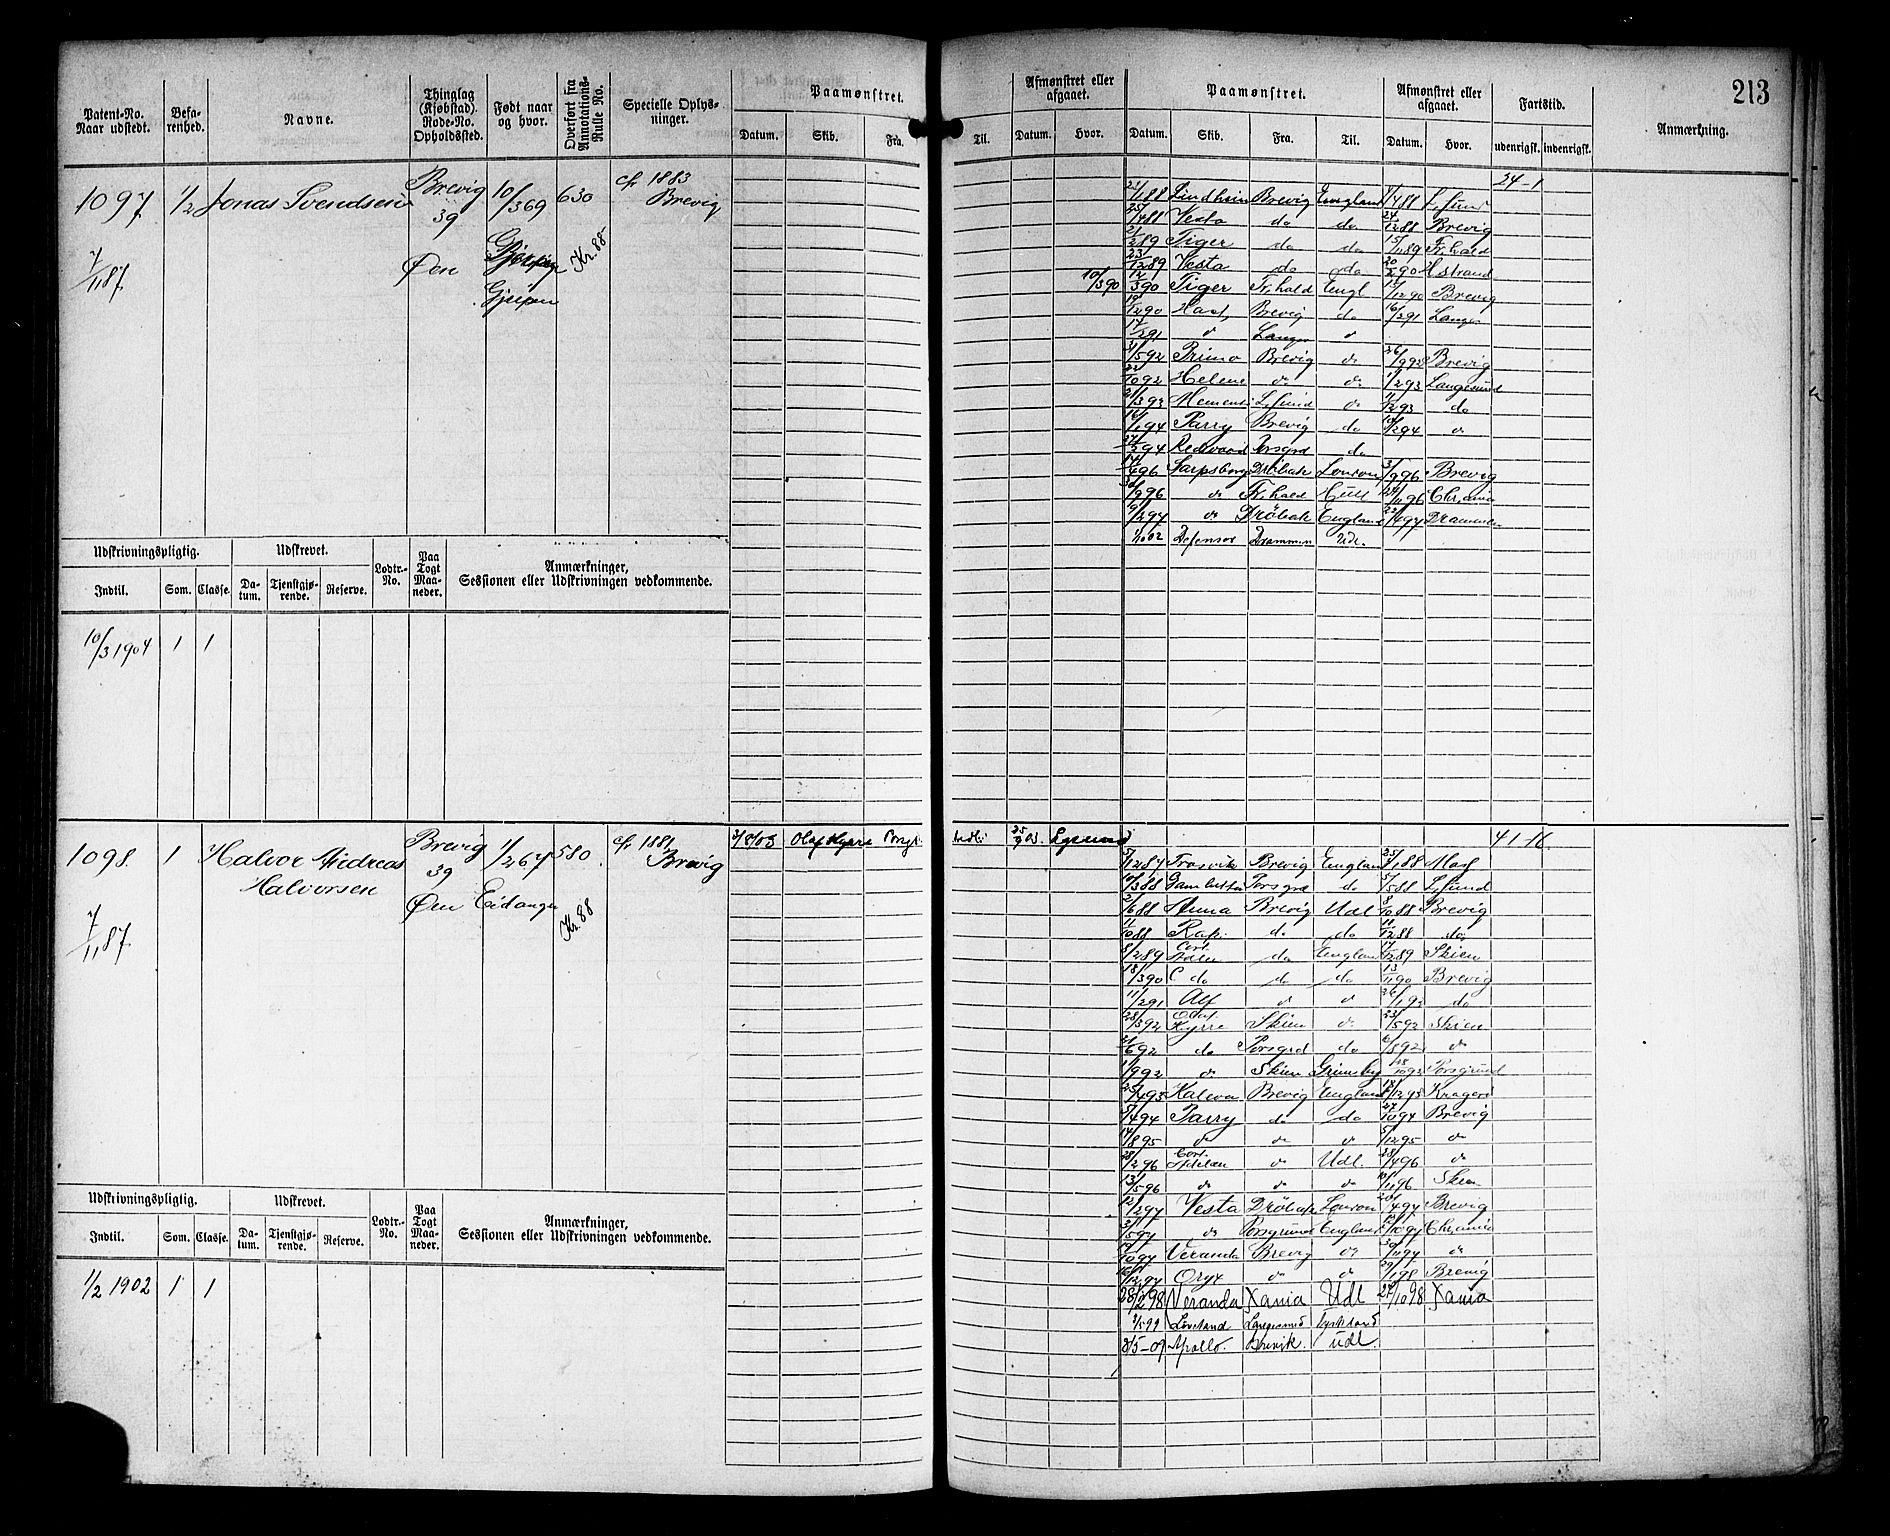 213
Patent-No. Naar udstedt.
Befarenhed.
Navne.
Thinglag (Kjøbstad). Rode-No. Opholdssted.
Født naar og hvor.
Overført fra Annotations-Rulle No.
Specielle Oplysninger.
Paamønstret.
Datum. Skib. Fra. Til.
Afmønstret eller afgaaet.
Datum. Hvor.
Paamønstret.
Datum. Skib. Fra. Til.
Afmønstret eller afgaaet.
Datum. Hvor.
Fartstid.
udenrigsk. indenrigsk.
Anmærkning.
1097 1/2 Jonas Svendsen Brevig 10/3 69 630 cfr 1883 Brevig
39
7/11 87 Øen Gjerpen Kr. 88
Gjerpen
24-1
Lindheim Brevig England 1/4 88 L,sund
25/4 88 Vesta do do 24/12 88 Brevig
2/2 89 Tiger do do 15/11 89 Fr,hald
23/12 89 Vesta do do 20/2 90 H strand
10/3 90 12/3 90 Tiger Fr,hald Engl 15/12 90 Brevig
19/12 90 Brevig do 16/2 91
17/2 91 d
31/5 92 Primo Brevig do 26/9 92 Brevig
22/10 92 Helene do do 1/2 93 Langesund
21/3 93 L,sund do 4/12 93 do
16/1 94 Parry Brevig do 10/2 94 do
27/2 94 Porsgrd do
14/6 96 Sarpsborg Drøbak London 3/9 96 Brevig
9 96 do Fr,hald Hull 24/11 96 Chr,ania
9/2 97 do Drøbak England 22/6 97 Drammen
1/10 02 Defensor Drammen Udl.
Udskrivningspligtig.
Indtil. Som. Classe.
Udskrevet.
Datum. Tjenstgjørende. Reserve.
Lodtr.-No.
Paa Togt Maaneder.
Anmærkninger,
Sessionen eller Udskrivningen vedkommende.
10/3 1904 1 1
1098 1 Halvor Andreas Halvorsen Brevig 1/2 67 580 cfr 1881 Brevig
39
7/11 87 Øen Eidanger Kr. 88
Olaf Kyrre Udl.
41-16
5/12 87 Brevig England 25/1 88
10/3 88 Gambetta Porsgrd do 5/5 88 L,sund
2/6 88 Anna Brevig Udl 8/10 88 Brevig
11/10 88 do do 11/12 88 do
8/2 89 do England 17/12 89 Skien
18/3 90 do do do 13/11 90 Brevig
11/2 91 Alf do do 26/1 92 do
28/3 92 Olaf Kyrre Skien do 23/5 92 Skien
6 92 do Porsgrd do 6/8 92 do
1/9 92 do Skien Grimsby 28/10 92 Porsgrund
Brevig England 18/12 93 Kragerø
5/4 94 Parry do do 27/12 94 Brevig
14/8 95 do do do 5/12 95 do
28/2 96 Cort Adelaer do Udl. 28/4 96 do
13/5 96 do do do 10/11 96 Skien
12/2 97 Vesta Drøbak London 20/4 97 Brevig
3/5 97 do Porsgrund England 10 97 Chr,ania
10 97 Veranda Brevig do 30/11 97 do
16/12 97 Oryx do do 29/1 98 Brevig
28/2 98 Veranda Xania Udl 27/10 98 Xania
2/5 99 Loveland Langesund Tyskland
Apollo. Brevik. Udl.
Udskrivningspligtig.
Indtil. Som. Classe.
Udskrevet.
Datum. Tjenstgjørende. Reserve.
Lodtr.-No.
Paa Togt Maaneder.
Anmærkninger,
Sessionen eller Udskrivningen vedkommende.
1/2 1902 1 1